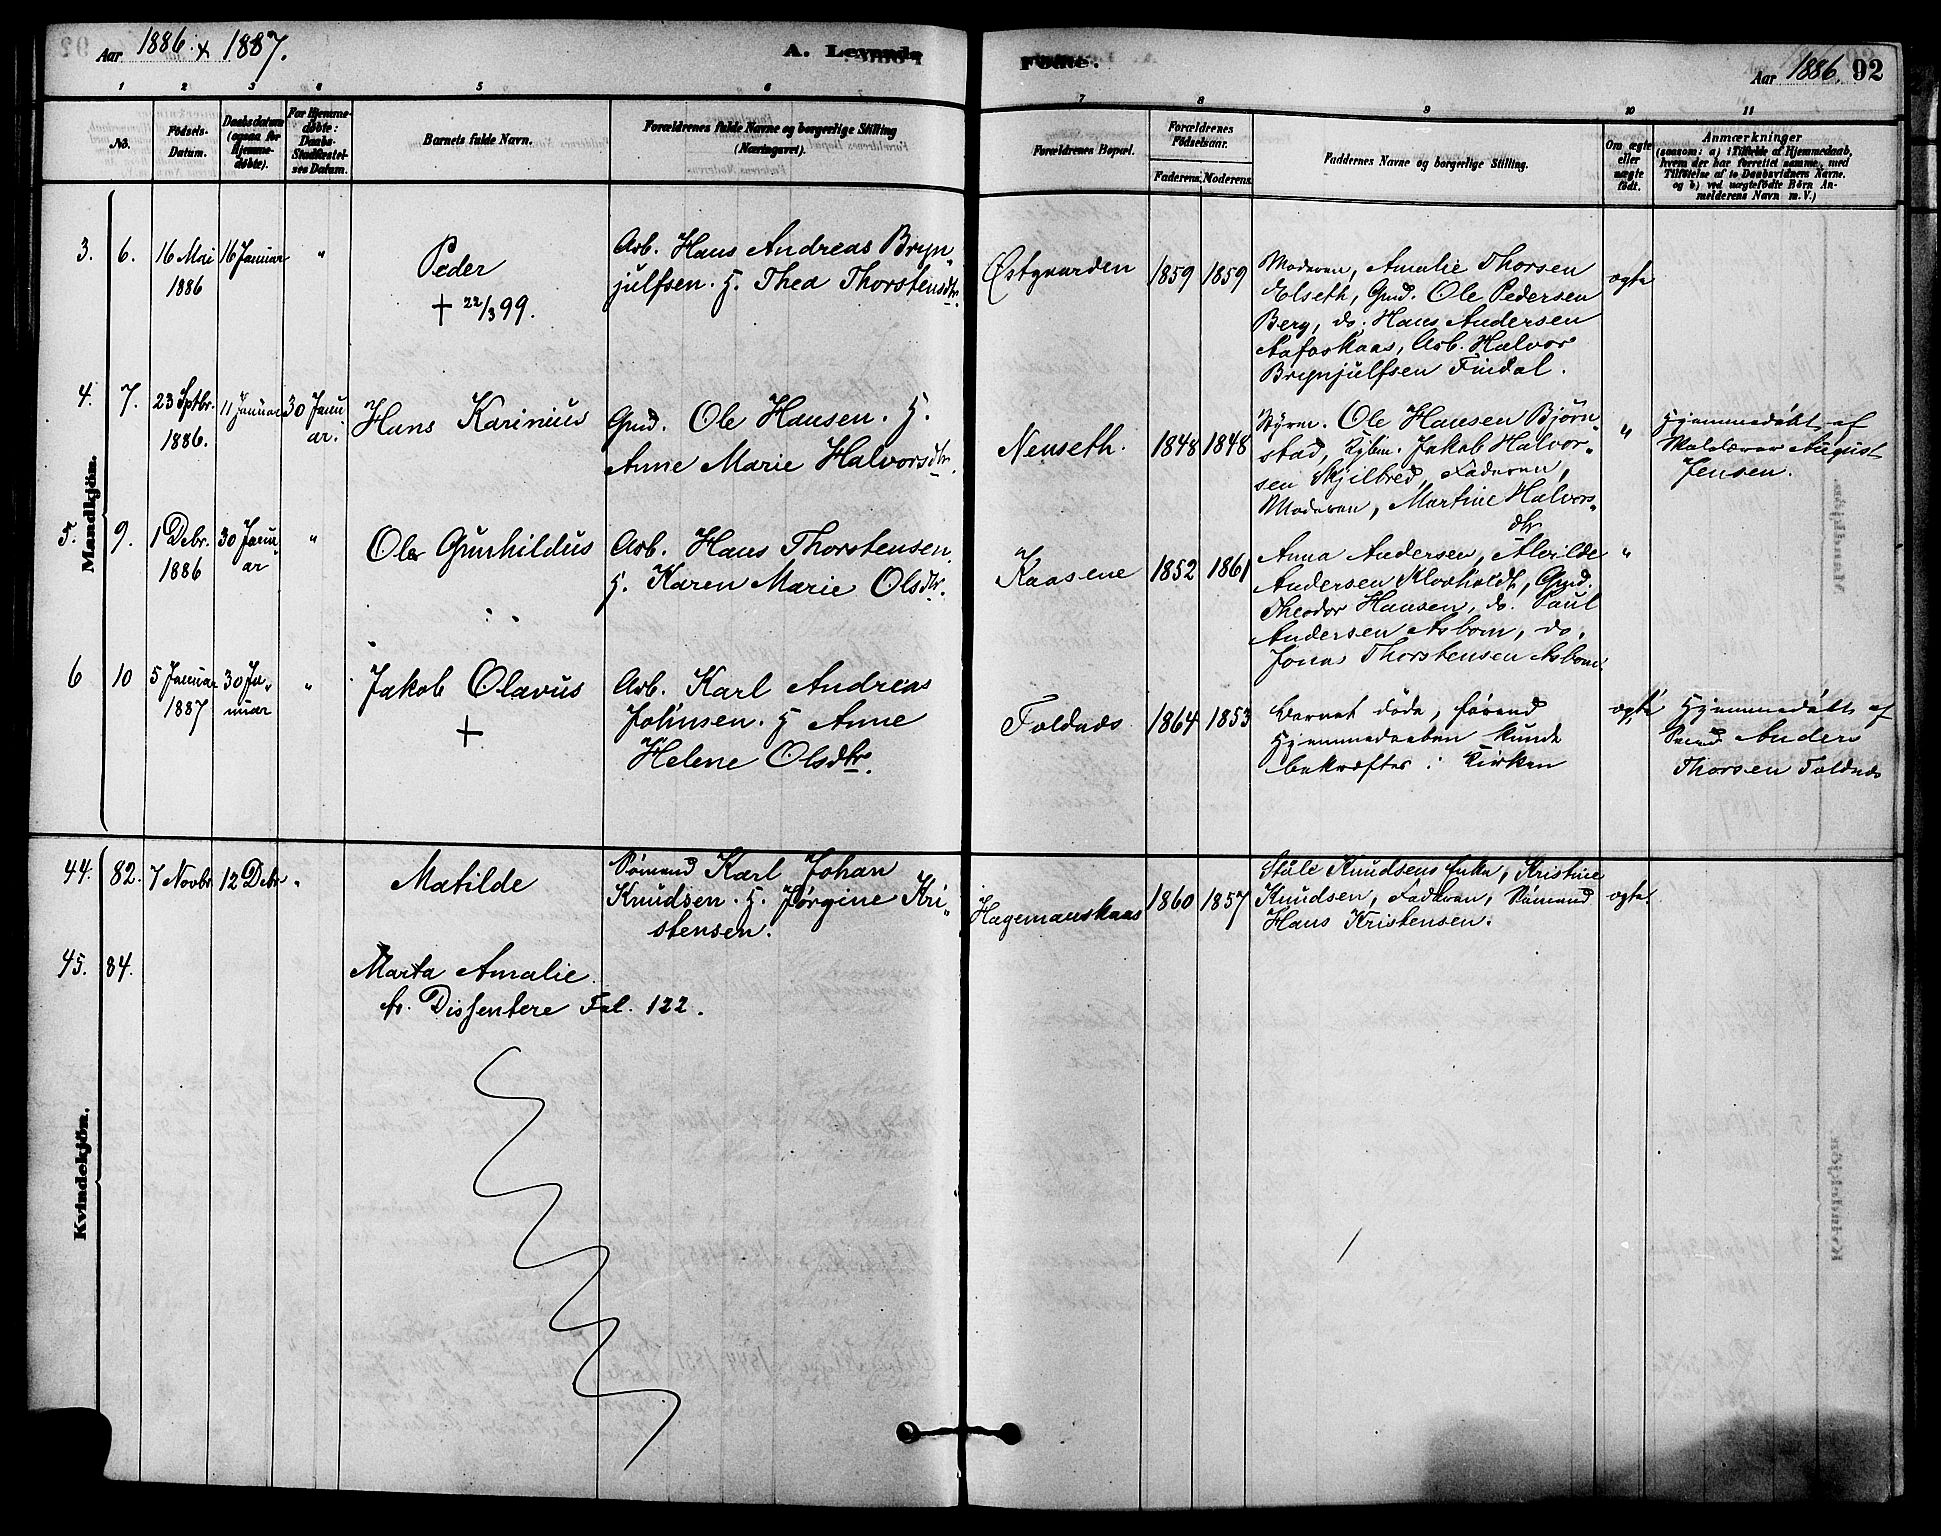 Aar 1886 & 1887.
A. Levende
Fødte.
Aar 1886. 92
1 2 3 4 5 6 7 8 9 10 11
No.
Fødsels-
Datum.
Daabsdatum
(ogsaa for
Hjemme-
døbte).
For Hjemme-
døbte:
Daabs-
Stadfæstel-
ses Datum.
Barnets fulde Navn.
Forældrenes fulde Navne og borgerlige Stilling
(Næringsvei).
Forældrenes Bopæl.
Forældrenes
Fødselsaar.
Faderens. Moderens.
Faddernes Navne og borgerlige Stilling.
Om ægte
eller
uægte
født.
Anmærkninger
(saasom: a) i Tilfælde af Hjemmedaab,
hvem der har forrettet samme, med
Tilføielse af to Daabsvidners Navne.
og b) ved uægtefødte Børn An-
melderens Navn m. V.)
Mandkjön.
3. 6. 16 Mai
1886
16 Januar
"
Peder
+ 22/3 99.
Arb. Hans Andreas Bryn
julfsen. H. Thea Thorstensdtr.
Østgaarden
1859 1859
Moderen, Amalie Thorsen
Elseth, Gmd. Ole Pedersen
Berg, do. Hans Andersen
Aafoskaas, Arb. Halvor
Brynjulfsen Findal.
ægte
4. 7. 23 Sptbr.
1886.
11 Januar
30 Janu
ar.
Hans Karinius
Gmd. Ole Hansen. H.
Anne Marie Halvorsdtr.
Nenseth.
1848 1848
Styrm. Ole Hansen Bjørn
stad, Kjbm. Jakob Halvor-
sen Skjilbred, Faderen,
Moderen, Martine Halvors-
dtr
"
Hjemmedøbt af
Skolelærer August
Jensen.
5. 9. 1 Debr.
1886
30 Janu
ar
"
Ole Gunhildus
Arb. Hans Thorstensen.
H. Karen Marie Olsdtr.
Kaasene
1852 1861
Anna Andersen,
Andersen Klovholdt, Gmd.
Theodor Hansen, do. Paul
Andersen Asbom, do.
Jonas Thorstensen Asbom.
"
6 10 5 Januar
1887
30 Ja-
nuar
"
Jakob Olavus
+
Arb. Karl Andreas
Johnsen. H Anne
Helene Olsdtr.
Foldnæs
1864 1853
Barnet døde, førend
Hjemmedaaben kunde
bekræftes i Kirken
ægte
Hjemmedøbt af
Anders
Thorsen Foldnæs
Kvindekjön.
44. 82. 7 Novbr 12 Debr "
Matilde
Sømand Karl Johan
Knudsen. H. Jørgine Kri-
stensen.
Hagemanskaas
1860 1857
Ståle Knudsens Enke, Kristine
Knudsen, Faderen, Sømand
Hans Kristensen.
ægte.
45. 84.
Marta Amalie.
fr. Dissentere Fol. 122.